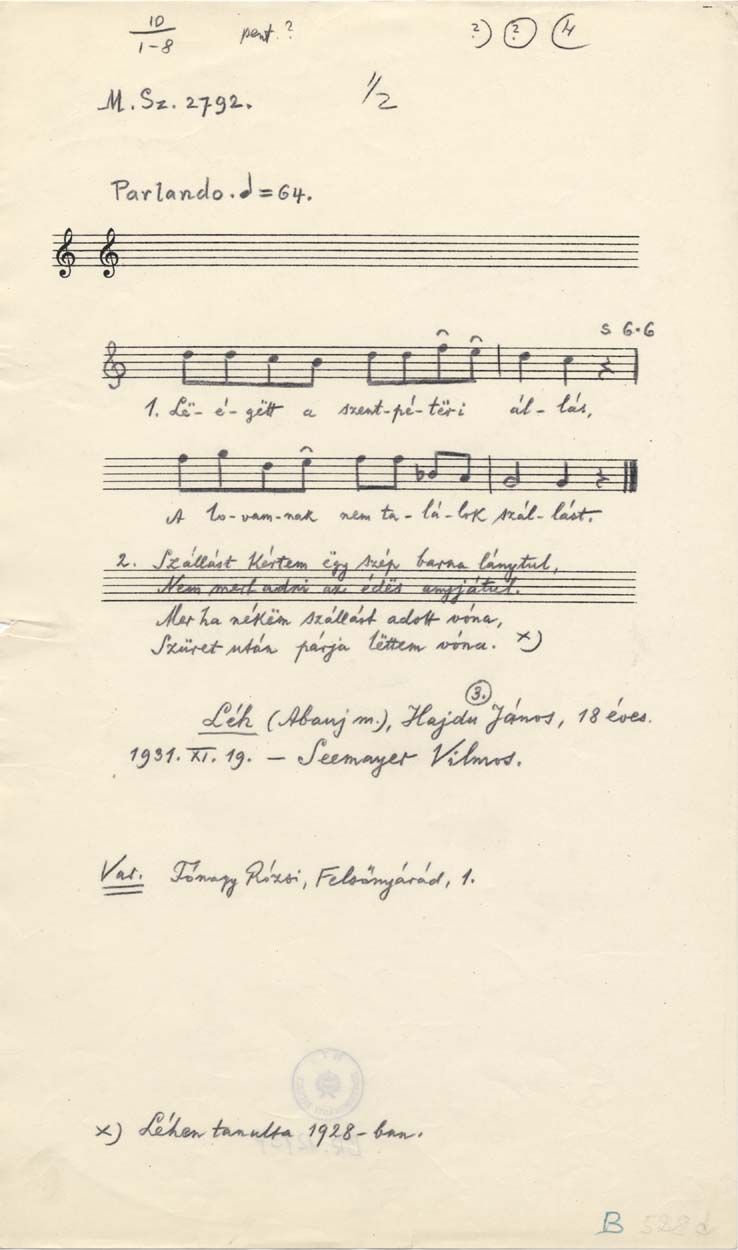 10 pent. ? ?) ? 4
1-8
M. Sz. 2792. 1/2
Parlando. = 64.
s 6·6
1. Lë- é- gëtt a szent-pé-tëri ál-lás,
A lo-vam-nak nem ta-lá-lok szál-lást.
2. Szállást kértem ëgy szép barna lánytul,
Nem mert adni az édës anyjátul.
Mer ha nékëm szállást adott vóna,
Szüret után párja lëttem vóna. x)
3.
Léh (Abauj m.), Hajdu János, 18 éves.
1931. XI. 19. – Seemayer Vilmos.
Var. Fónagy Rózsi, Felsőnyárád, 1.
x) Léhen tanulta 1928-ban.
B 528d